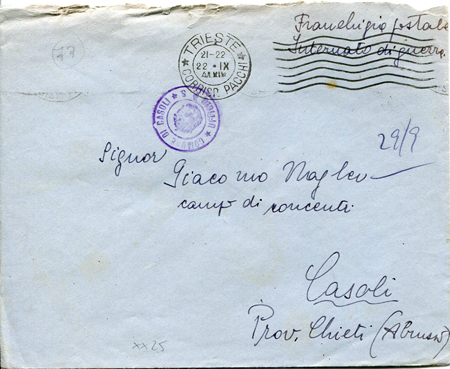 (77)
TRIESTE
21-22
22·IX
CORRISP. PACCHI
Franchigia postale
Internato di guerra
COMUNE DI CASOLI
29/9
Signor
Giacomo Nagler
camp di concenti
Casoli
Prov. Chieti (Abruzzi)
xx25